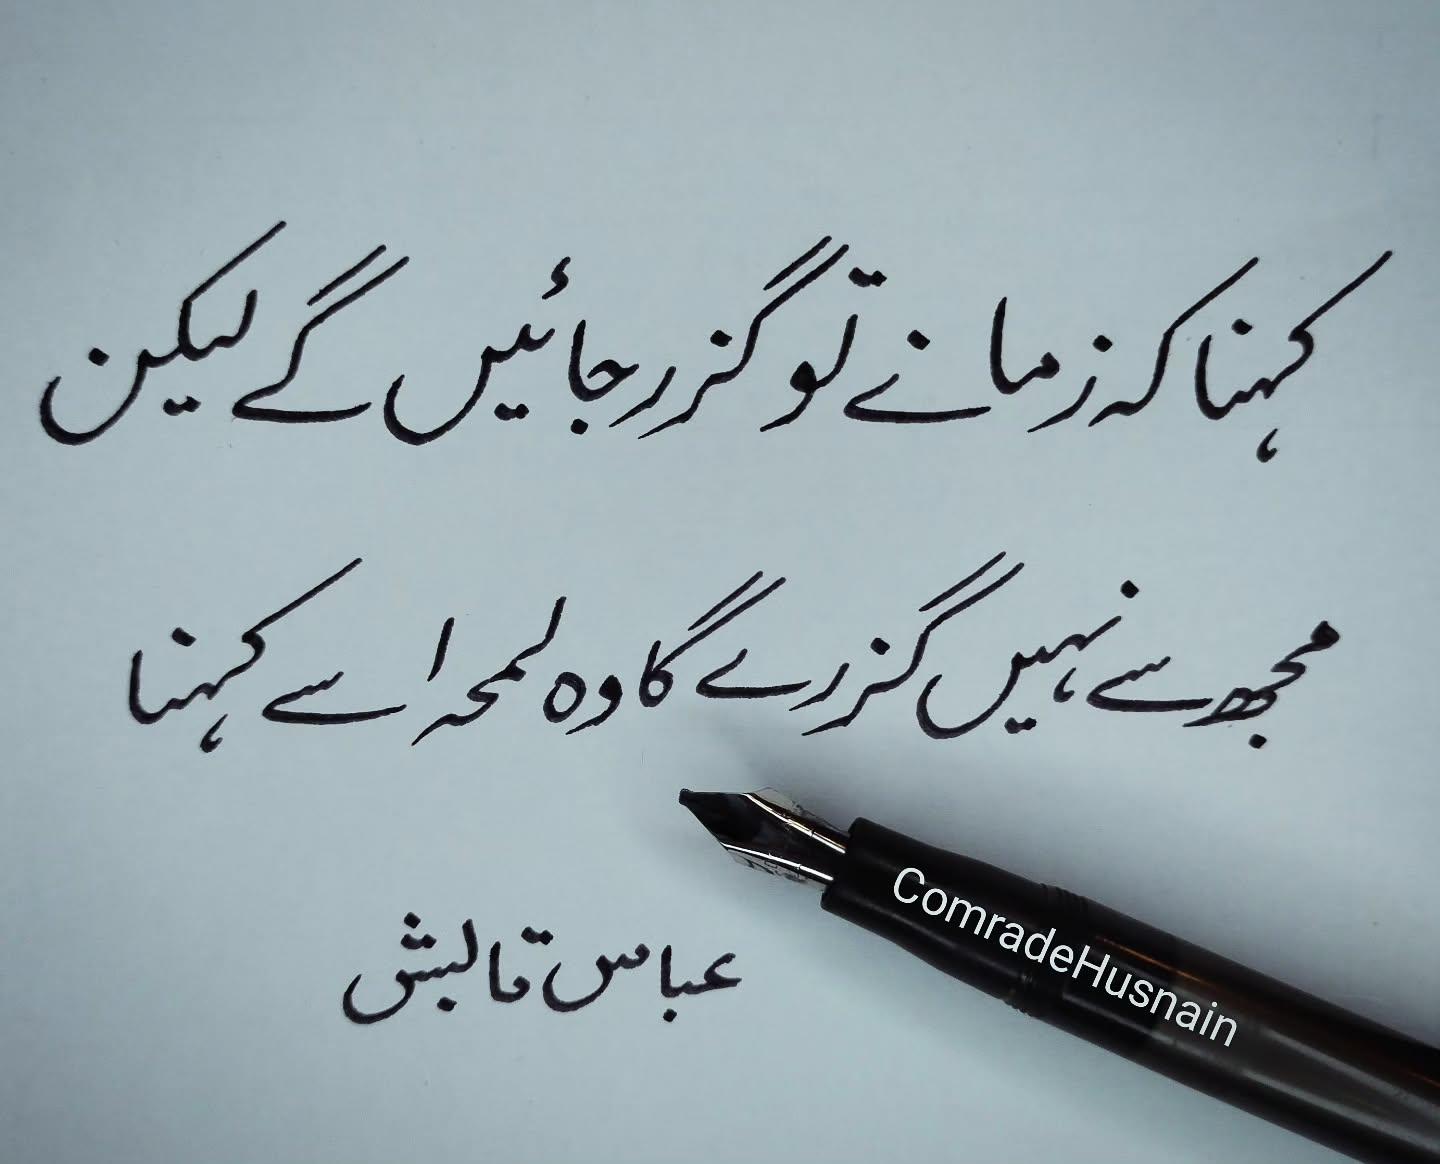 کہنا کہ زمانے تو گزر جائیں گے لیکن
مجھ سے نہیں گزرے گا وہ لمحہ اسے کہنا
عباس قالبش
ComradeHusnain